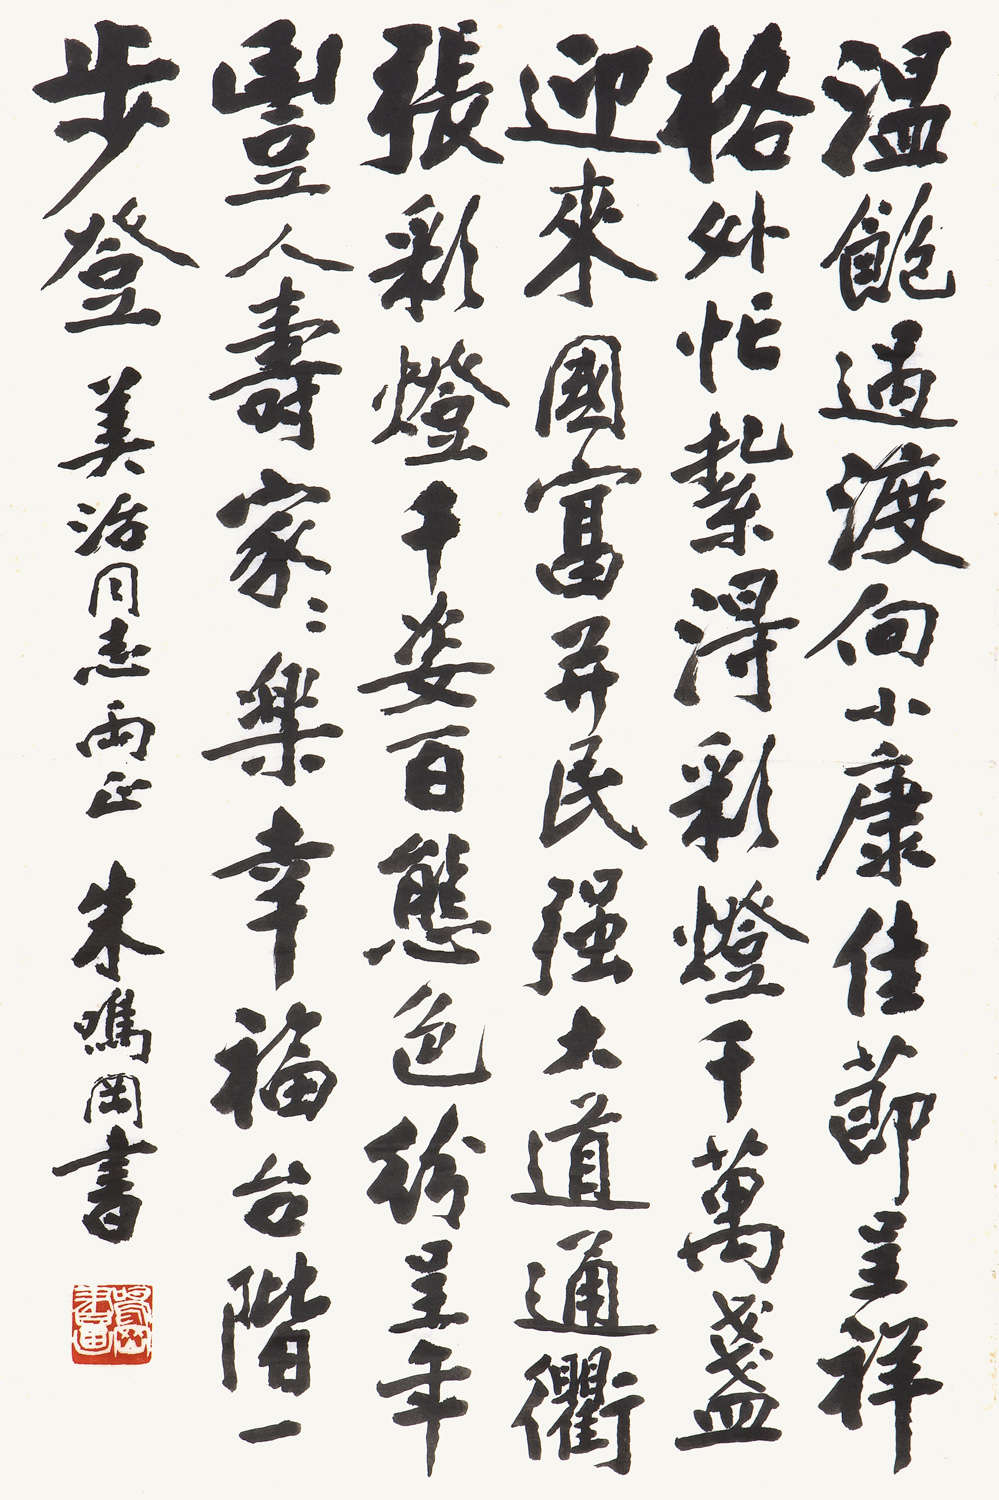 溫飽過渡向小康佳節呈祥
格外忙紮得彩燈千萬盞
迎來國富并民强大道通衢
張彩燈千姿百態色紛呈年
豐人壽家々樂幸福台階一
步登 美活同志兩正 朱鳴岡書